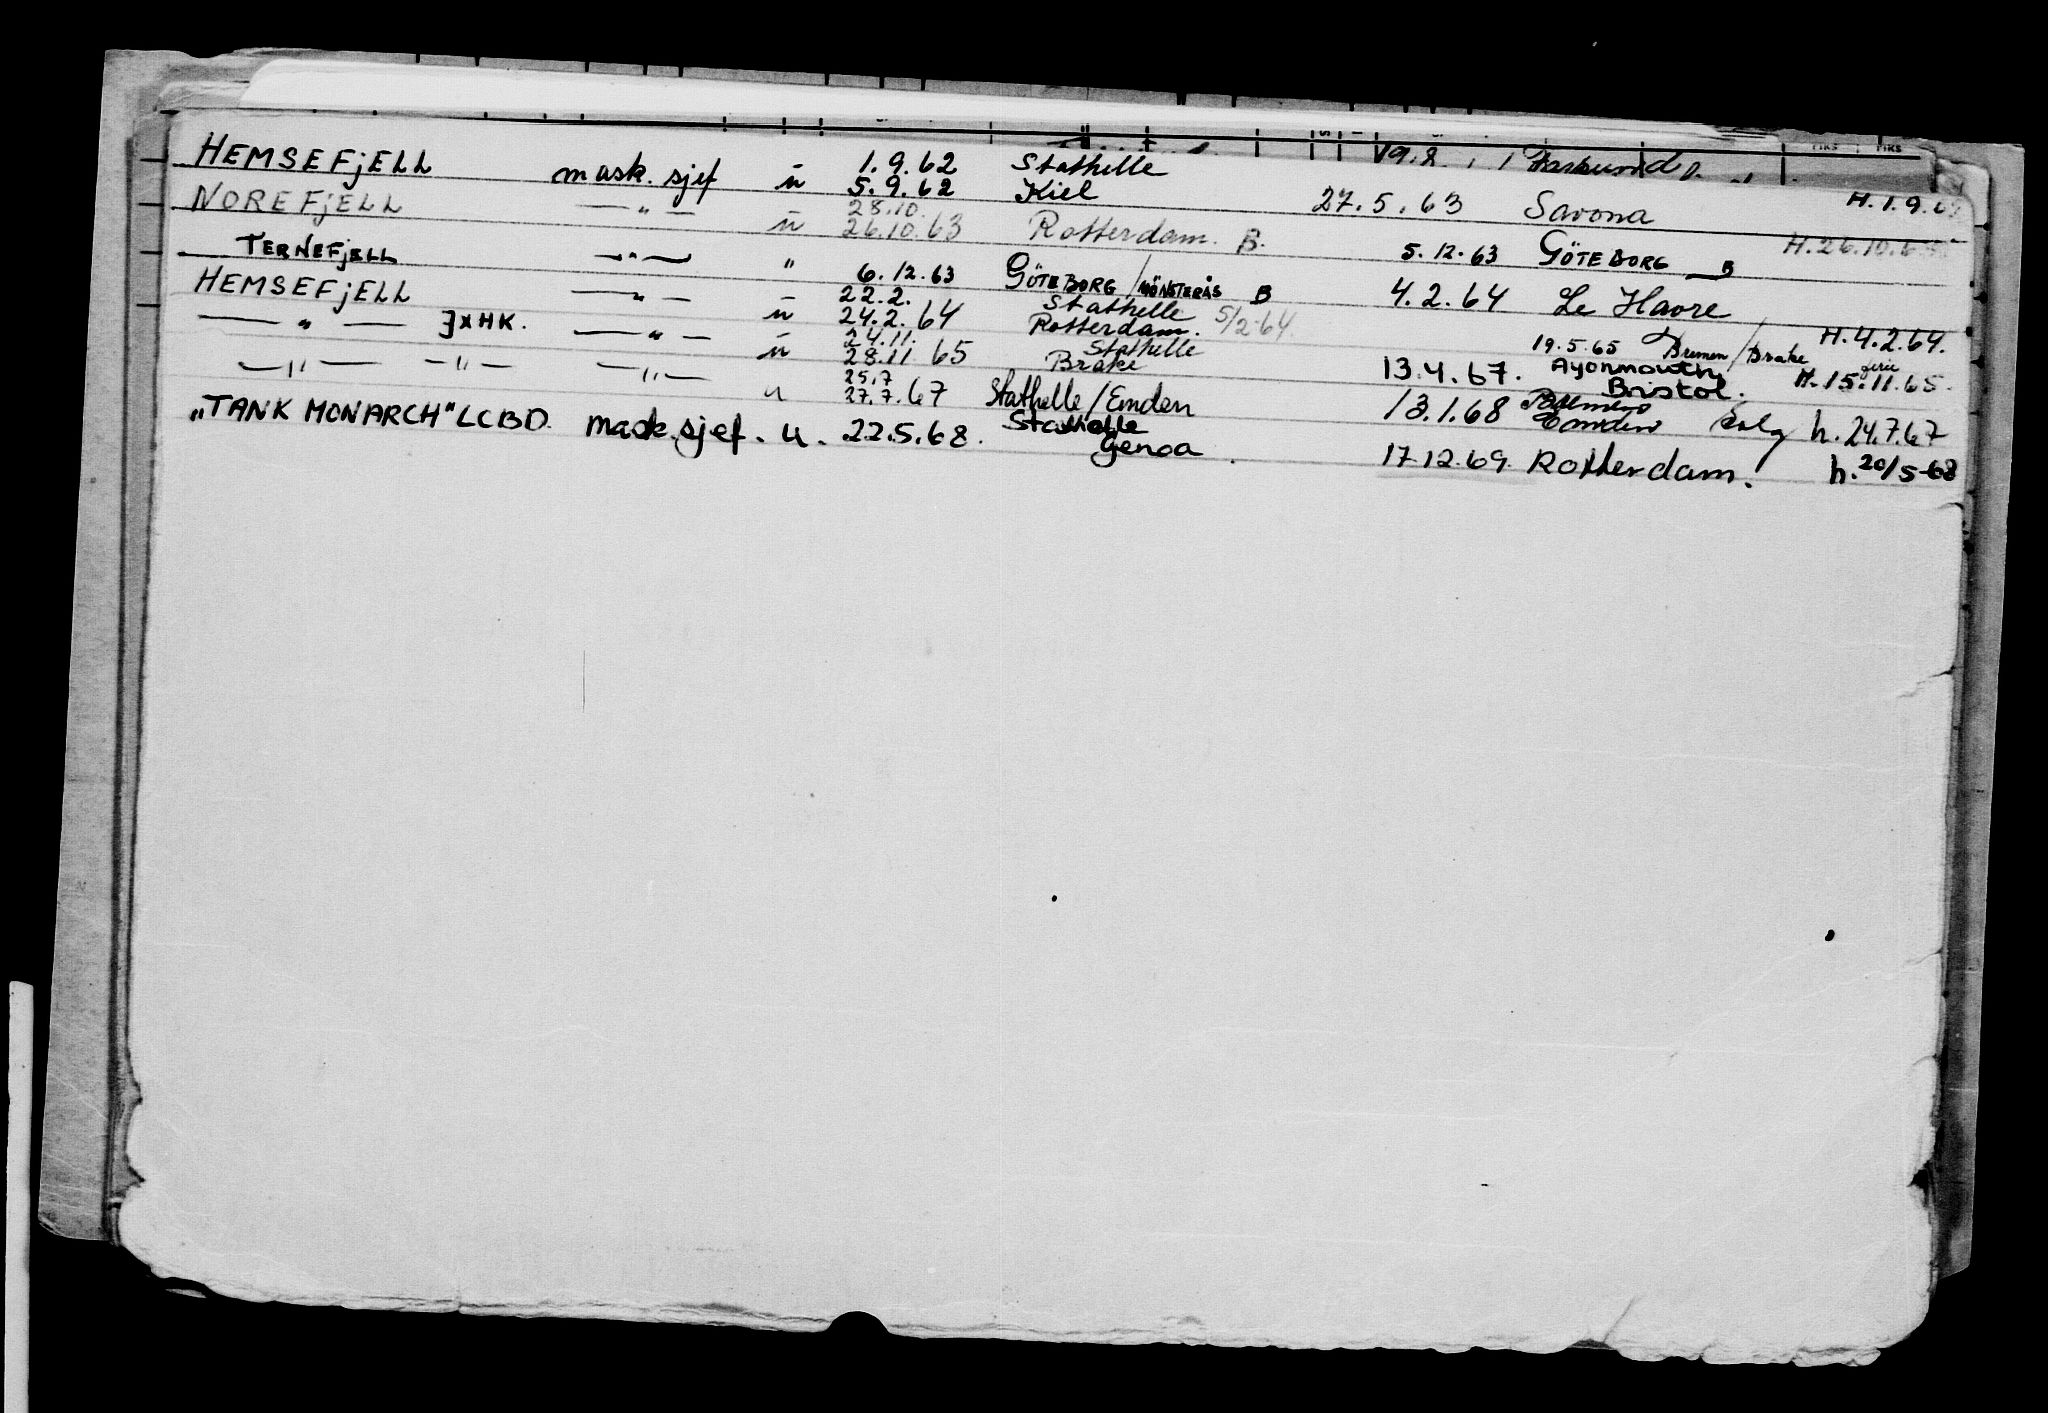 HEMSEFjELL mask. sjef u 1.9.62 Stathelle
5.9.62 Kiel 27.5.63 Savona H.1.9.
NOREFjELL —"— u 28.10.
26.10.63 Rotterdam. B. 5.12.63 GÖTEBORG B H.26.10.
TERNEFjELL —"— " 6.12.63 GÖTEBORG/MÖNSTERÅS B 4.2.64 Le Havre
HEMSEFjELL —"— u 22.2. Stathelle
24.2.64 Rotterdam. 5/2-64. 19.5.65 Bremen/Brake H.4.2.64.
—"— JXHK. —"— u 24.11. Stathelle
28.11 65 Brake 13.4.67. Avonmouth Bristol. ferie H.15.11.65.
—"— —"— —"— u 25.7
27.7.67 Stathelle/Emden 13.1.68 Emden Solg h. 24.7.67
„TANK MONARCH" LCBD. mask.sjef. u. 22.5.68. Stathelle
Genoa. 17.12.69. Rotterdam. h. 20/5-68